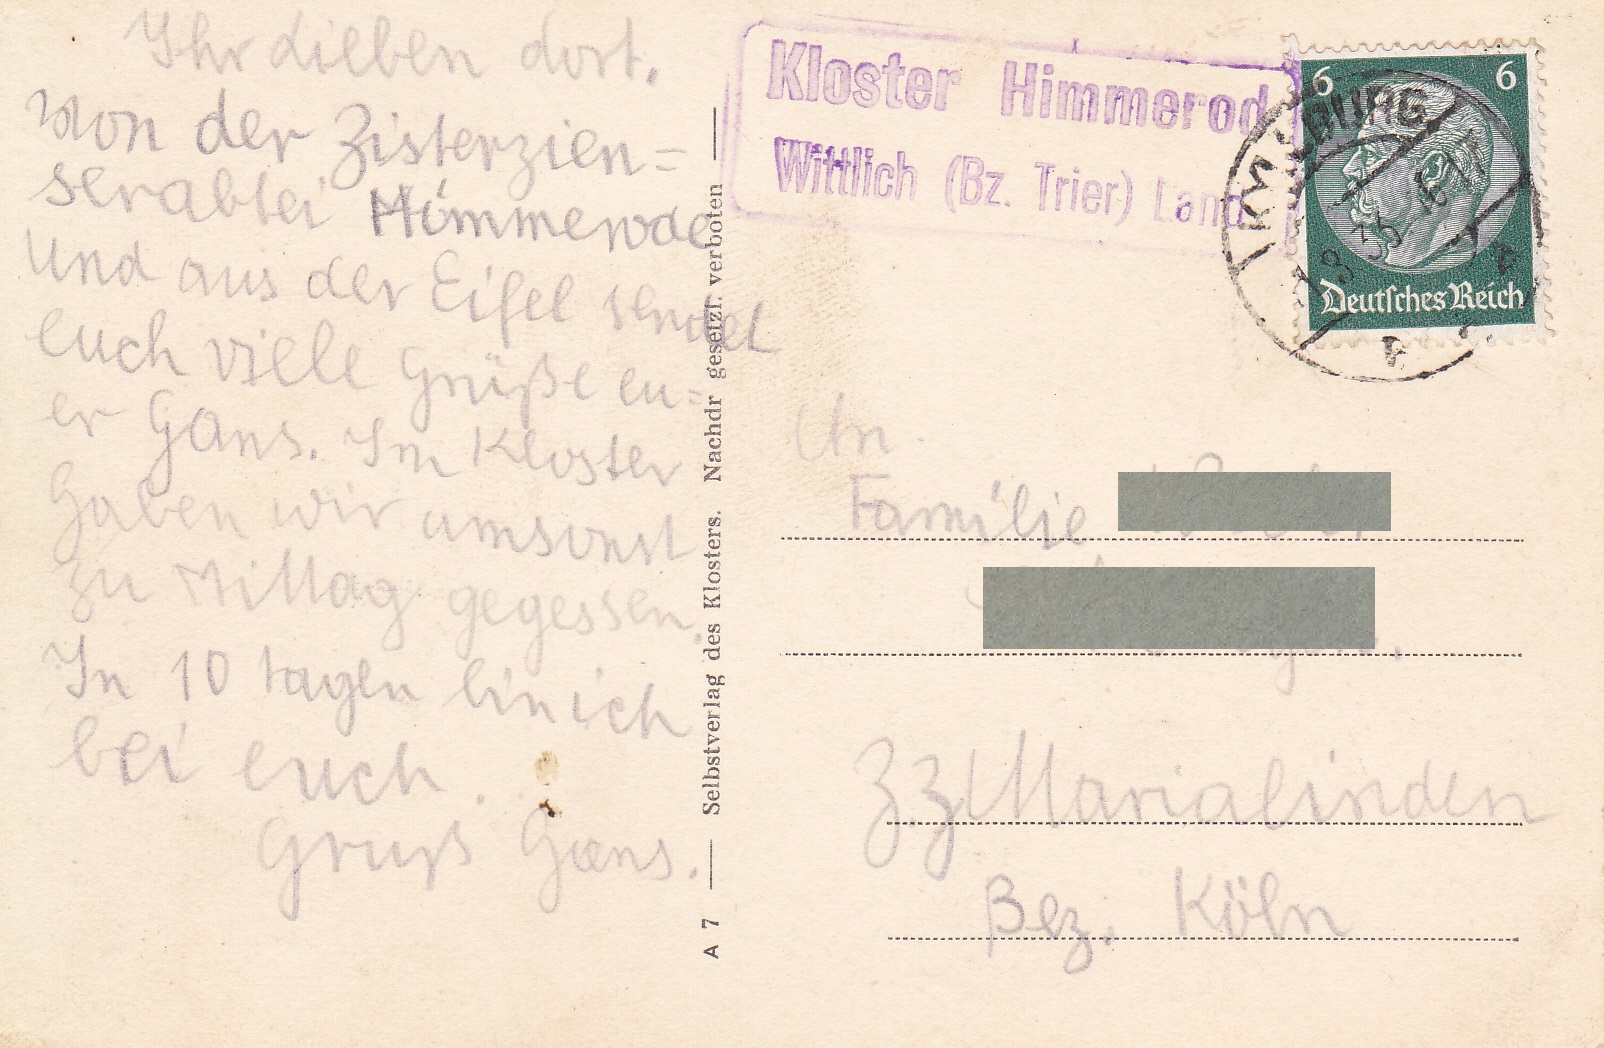 Ihr Lieben dort.
Von der Zisterzien=
serabtei Himmerode
Und aus der Eifel sendet
Euch viele Grüße eu=
er Hans. Im Kloster
Haben wir umsonst
zu Mittag gegessen.
In 10 tagen bin ich
bei euch.
Gruß Hans.
A 7 — Selbstverlag des Klosters. Nachdr gesetzl. verboten —
Kloster Himmerod
Wittlich (Bz. Trier) Land
6 6
Deutsches Reich
An
Familie
Z.Z Marialinden
Bez. Köln